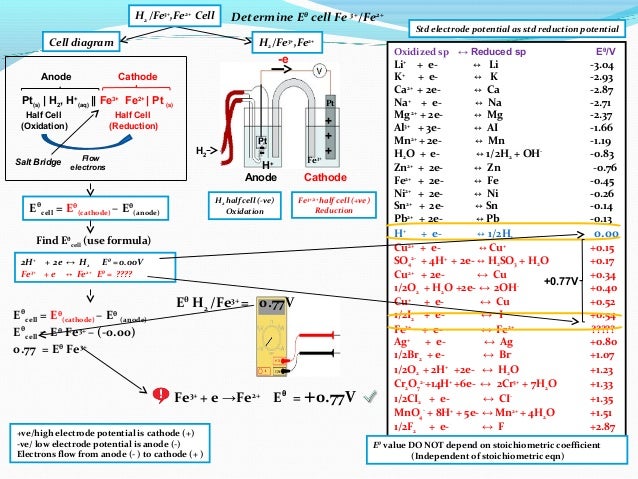 H₂ /Fe³⁺,Fe²⁺ Cell
Determine Eᶿ cell Fe ³⁺/Fe²⁺
Std electrode potential as std reduction potential
Cell diagram
H₂/Fe³⁺,Fe²⁺
Anode Cathode
Pt(s) | H₂, H⁺(aq) ‖ Fe³⁺ Fe²⁺ | Pt (s)
Half Cell Half Cell
(Oxidation) (Reduction)
Salt Bridge
Flow
electrons
-e
V
Pt
+
+
+
Pt
H₂->
H⁺
Fe³⁺
Anode Cathode
H₂ half cell (-ve)
Oxidation
Fe³⁺/²⁺ half cell (+ve)
Reduction
Eᶿcell = Eᶿ(cathode) – Eᶿ(anode)
Find Eᶿcell (use formula)
2H⁺ + 2e ↔ H₂ Eᶿ = 0.00V
Fe³⁺ + e ↔ Fe²⁺ Eᶿ = ????
Eᶿcell = Eᶿ(cathode) – Eᶿ(anode)
Eᶿcell = Eᶿ Fe³⁺ – (-0.00)
0.77 = Eᶿ Fe³⁺
Eᶿ H₂ /Fe³⁺ = 0.77V
Fe³⁺ + e →Fe²⁺ Eᶿ = +0.77V
+ve/high electrode potential is cathode (+)
-ve/ low electrode potential is anode (-)
Electrons flow from anode (- ) to cathode (+ )
Oxidized sp ↔ Reduced sp Eᶿ/V
Li⁺ + e- ↔ Li -3.04
K⁺ + e- ↔ K -2.93
Ca²⁺ + 2e- ↔ Ca -2.87
Na⁺ + e- ↔ Na -2.71
Mg²⁺ + 2e- ↔ Mg -2.37
Al³⁺ + 3e- ↔ Al -1.66
Mn²⁺ + 2e- ↔ Mn -1.19
H₂O + e- ↔ 1/2H₂ + OH⁻ -0.83
Zn²⁺ + 2e- ↔ Zn -0.76
Fe²⁺ + 2e- ↔ Fe -0.45
Ni²⁺ + 2e- ↔ Ni -0.26
Sn²⁺ + 2e- ↔ Sn -0.14
Pb²⁺ + 2e- ↔ Pb -0.13
H⁺ + e- ↔ 1/2H₂ 0.00
Cu²⁺ + e- ↔ Cu⁺ +0.15
SO₄²⁻ + 4H⁺ + 2e- ↔ H₂SO₃ + H₂O +0.17
Cu²⁺ + 2e- ↔ Cu +0.34
1/2O₂ + H₂O +2e- ↔ 2OH⁻ +0.40
Cu⁺ + e- ↔ Cu +0.52
1/2I₂ + e- ↔ I⁻ +0.54
Fe³⁺ + e- ↔ Fe²⁺ ?????
Ag⁺ + e- ↔ Ag +0.80
1/2Br₂ + e- ↔ Br⁻ +1.07
1/2O₂ + 2H⁺ +2e- ↔ H₂O +1.23
Cr₂O₇²⁻+14H⁺ +6e- ↔ 2Cr³⁺ + 7H₂O +1.33
1/2Cl₂ + e- ↔ Cl⁻ +1.35
MnO₄⁻ + 8H⁺ + 5e- ↔ Mn²⁺ + 4H₂O +1.51
1/2F₂ + e- ↔ F +2.87
+0.77V
Eᶿ value DO NOT depend on stoichiometric coefficient
(Independent of stoichiometric eqn)